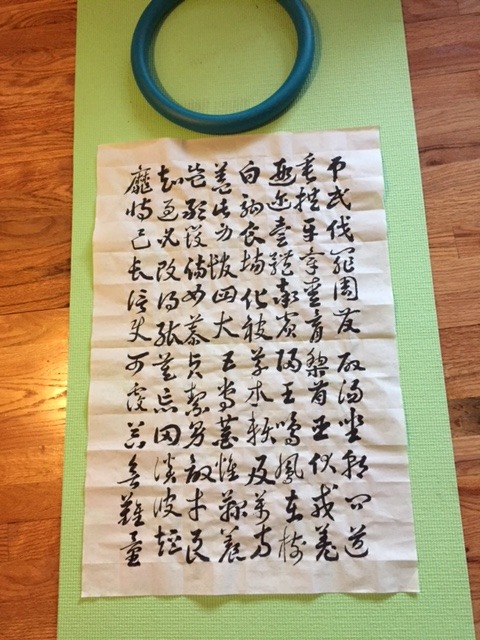 弔民伐罪周發殷湯坐朝問道
垂拱平章愛育黎首臣伏戎羌
遐邇壹體率賓歸王鳴鳳在樹
白駒食場化被草木賴及萬方
蓋此身髮四大五常恭惟鞠養
豈敢毀傷女慕貞潔男效才良
知過必改得能莫忘罔談彼短
靡恃己長信使可覆器欲難量